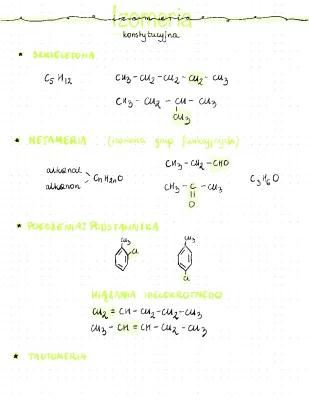 Izomeria
konstytucyjna
* SZKIELETOWA
C5H12 CH3-CH2-CH2-CH2-CH3
CH3-CH2-CH-CH3
CH3
* METAMERIA (izomeria grup funkcyjnych)
alkanal
alkanon
CnH2nO
CH3-CH2-CHO
CH3-C-CH3
O
C3H6O
* POŁOŻENIA PODSTAWNIKA
CH3
Cl
CH3
Cl
WIĄZANIA WIELOKROTNEGO
CH2=CH-CH2-CH2-CH3
CH3-CH=CH-CH2-CH3
* TAUTOMERIA